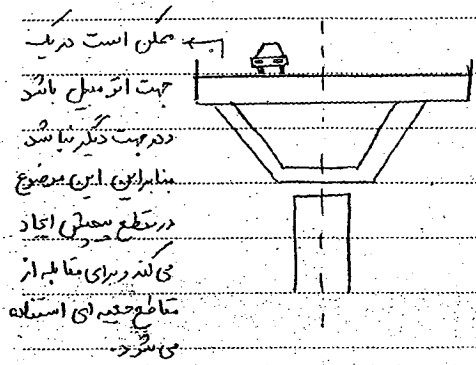 ب- ممکن است در یک
جهت اتومبیل باشد
و در جهت دیگر نباشد
بنابراین این موضوع
در مقطع پیچش ایجاد
می کند و برای مقابله از
مقاطع جعبه ای استفاده
می شود.